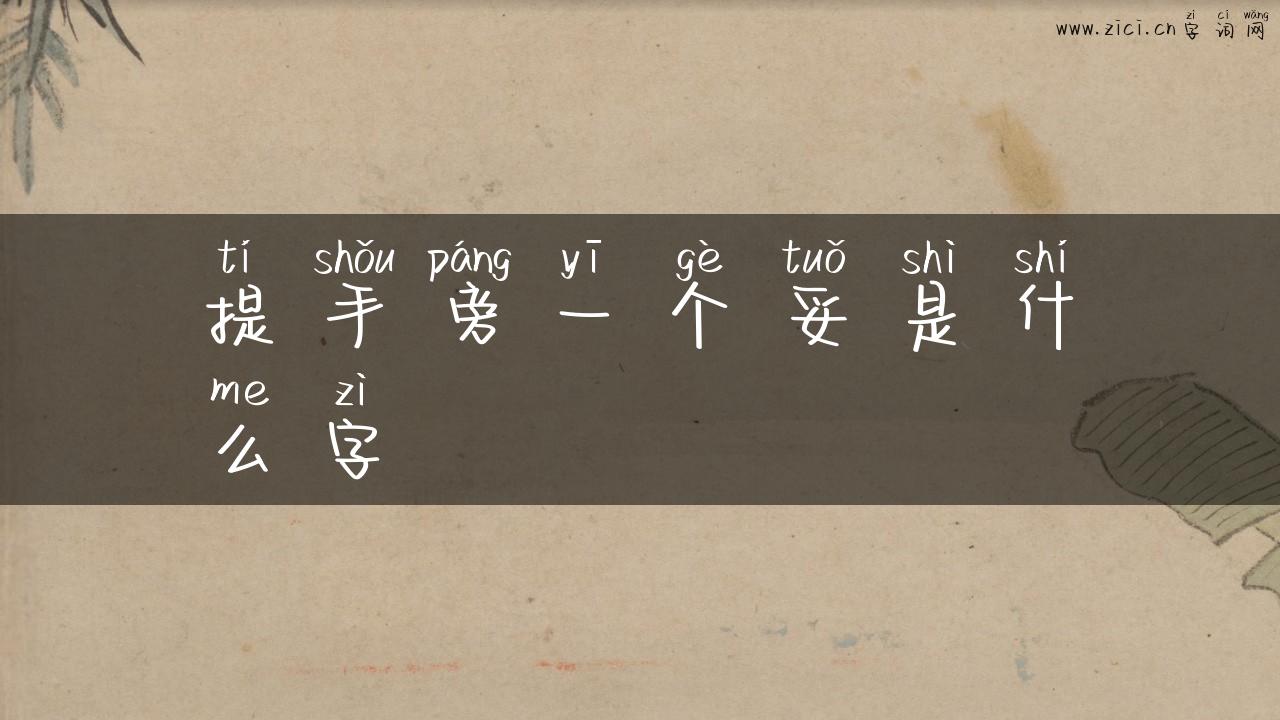 zì cí wǎng
www.zici.cn 字词网
tí shǒu páng yī gè tuǒ shì shí
提手旁一个妥是什
me zì
么字